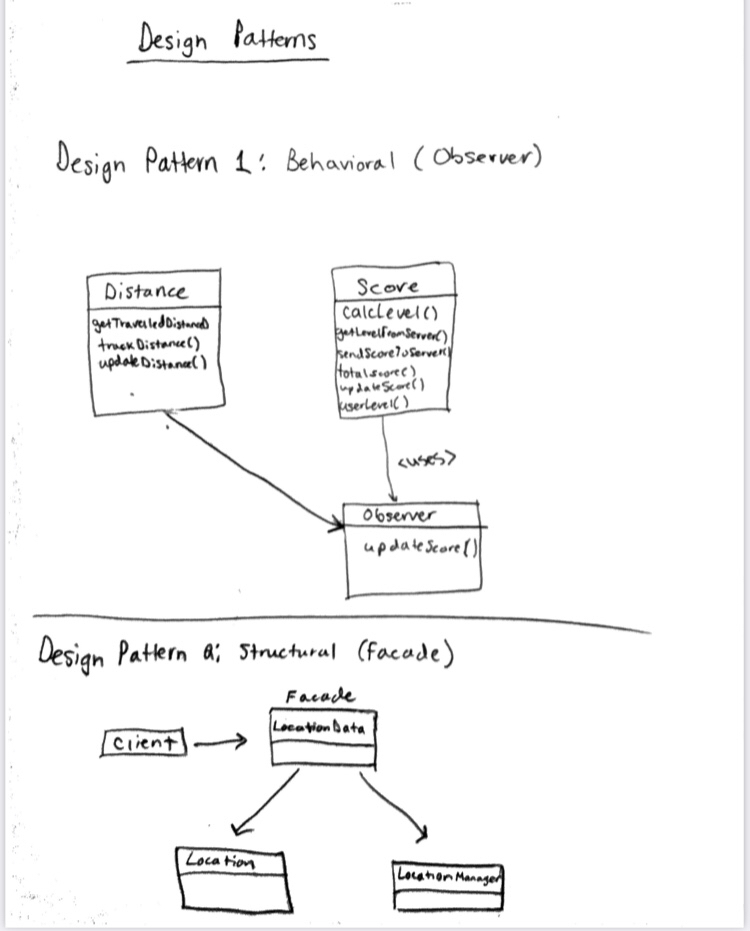 Design Patterns
Design Pattern 1: Behavioral (Observer)
Distance
getTravelledDistance()
trackDistance()
updateDistance()
Score
CalcLevel()
getLevelFromServer()
sendScoreToServer()
totalscore()
updateScore()
userLevel()
<uses>
Observer
updateScore()
Design Pattern 2: Structural (Facade)
Facade
LocationData
Client
Location
LocationManager